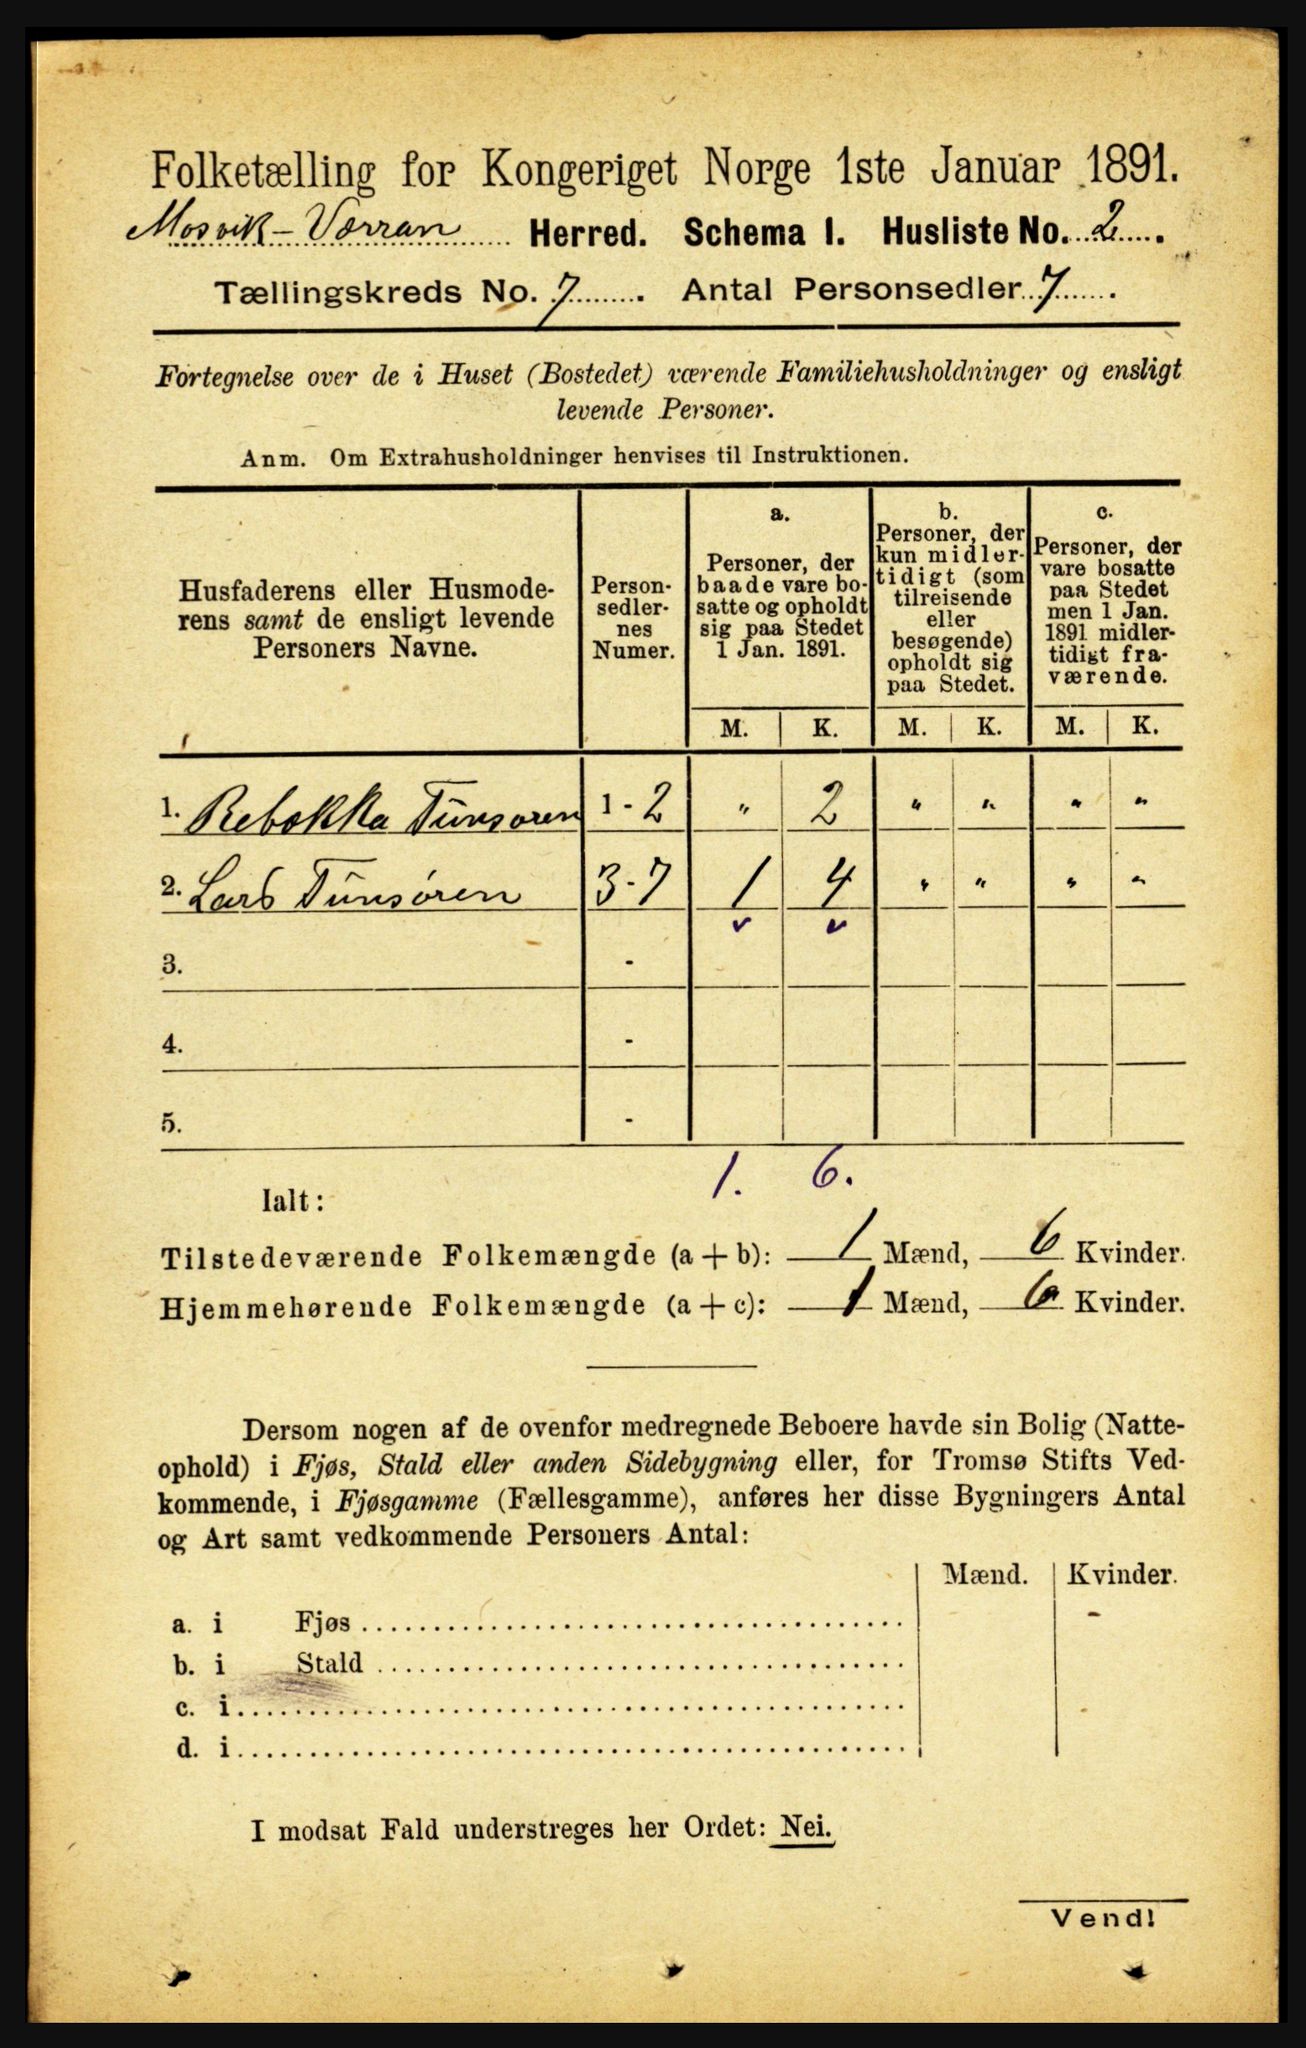 Folketælling for Kongeriget Norge 1ste Januar 1891.
Mosvik - Værran Herred. Schema I. Husliste No. 2.
Tællingskreds No. 7. Antal Personsedler 7.
Fortegnelse over de i Huset (Bostedet) værende Familiehusholdninger og ensligt
levende Personer.
Anm. Om Extrahusholdninger henvises til Instruktionen.
Husfaderens eller Husmode-
rens samt de ensligt levende
Personers Navne.
Person-
sedler-
nes
Numer.
a.
Personer, der
baade vare bo-
satte og opholdt
sig paa Stedet
1 Jan. 1891.
b.
Personer, der
kun midler-
tidigt (som
tilreisende
eller
besøgende)
opholdt sig
paa Stedet.
c.
Personer, der
vare bosatte
paa Stedet
men 1 Jan.
1891 midler-
tidigt fra-
værende.
M. K. M. K. M. K.
1. Rebekka Tunsøren 1 - 2 " 2 " " " "
2. Lars Tunsøren 3 - 7 1 4 " " " "
3. -
4. -
5. -
1. 6.
Ialt:
Tilstedeværende Folkemængde (a + b): 1 Mænd, 6 Kvinder.
Hjemmehørende Folkemængde (a + c): 1 Mænd, 6 Kvinder.
Dersom nogen af de ovenfor medregnede Beboere havde sin Bolig (Natte-
ophold) i Fjøs, Stald eller anden Sidebygning eller, for Tromsø Stifts Ved-
kommende, i Fjøsgamme (Fællesgamme), anføres her disse Bygningers Antal
og Art samt vedkommende Personers Antal:
Mænd. Kvinder.
a. i Fjøs
b. i Stald
c. i
d. i
I modsat Fald understreges her Ordet: Nei.
Vend!